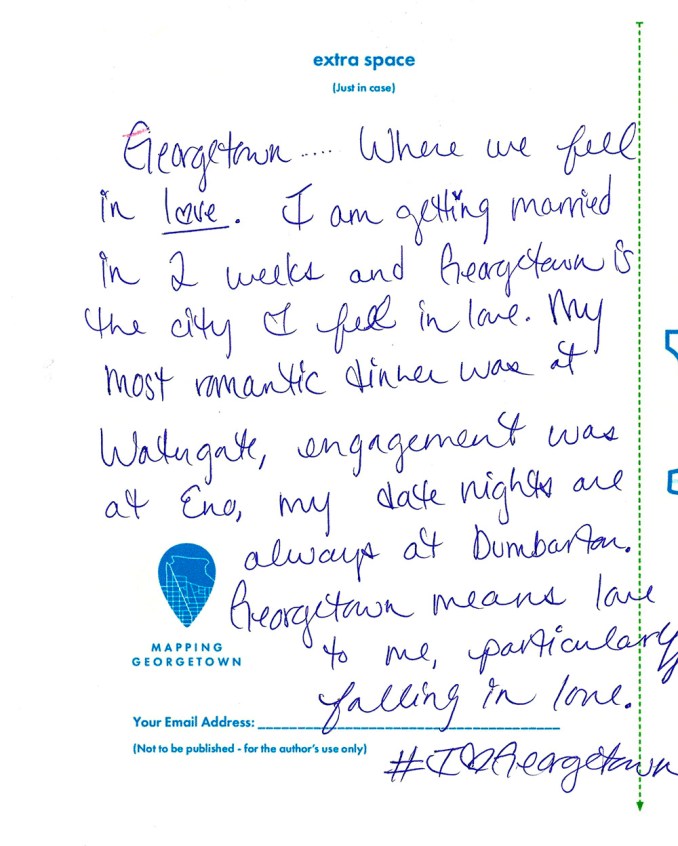 extra space
(Just in case)
Georgetown ..... Where we fell
in love. I am getting married
in 2 weeks and Georgetown is
the city I fell in love. My
most romantic dinner was at
Watergate, engagement was
at Eno, my date nights are
always at Dumbarton.
Georgetown means love
to me, particularly
falling in love.
#I♡Georgetown
MAPPING
GEORGETOWN
Your Email Address:
(Not to be published - for the author's use only)